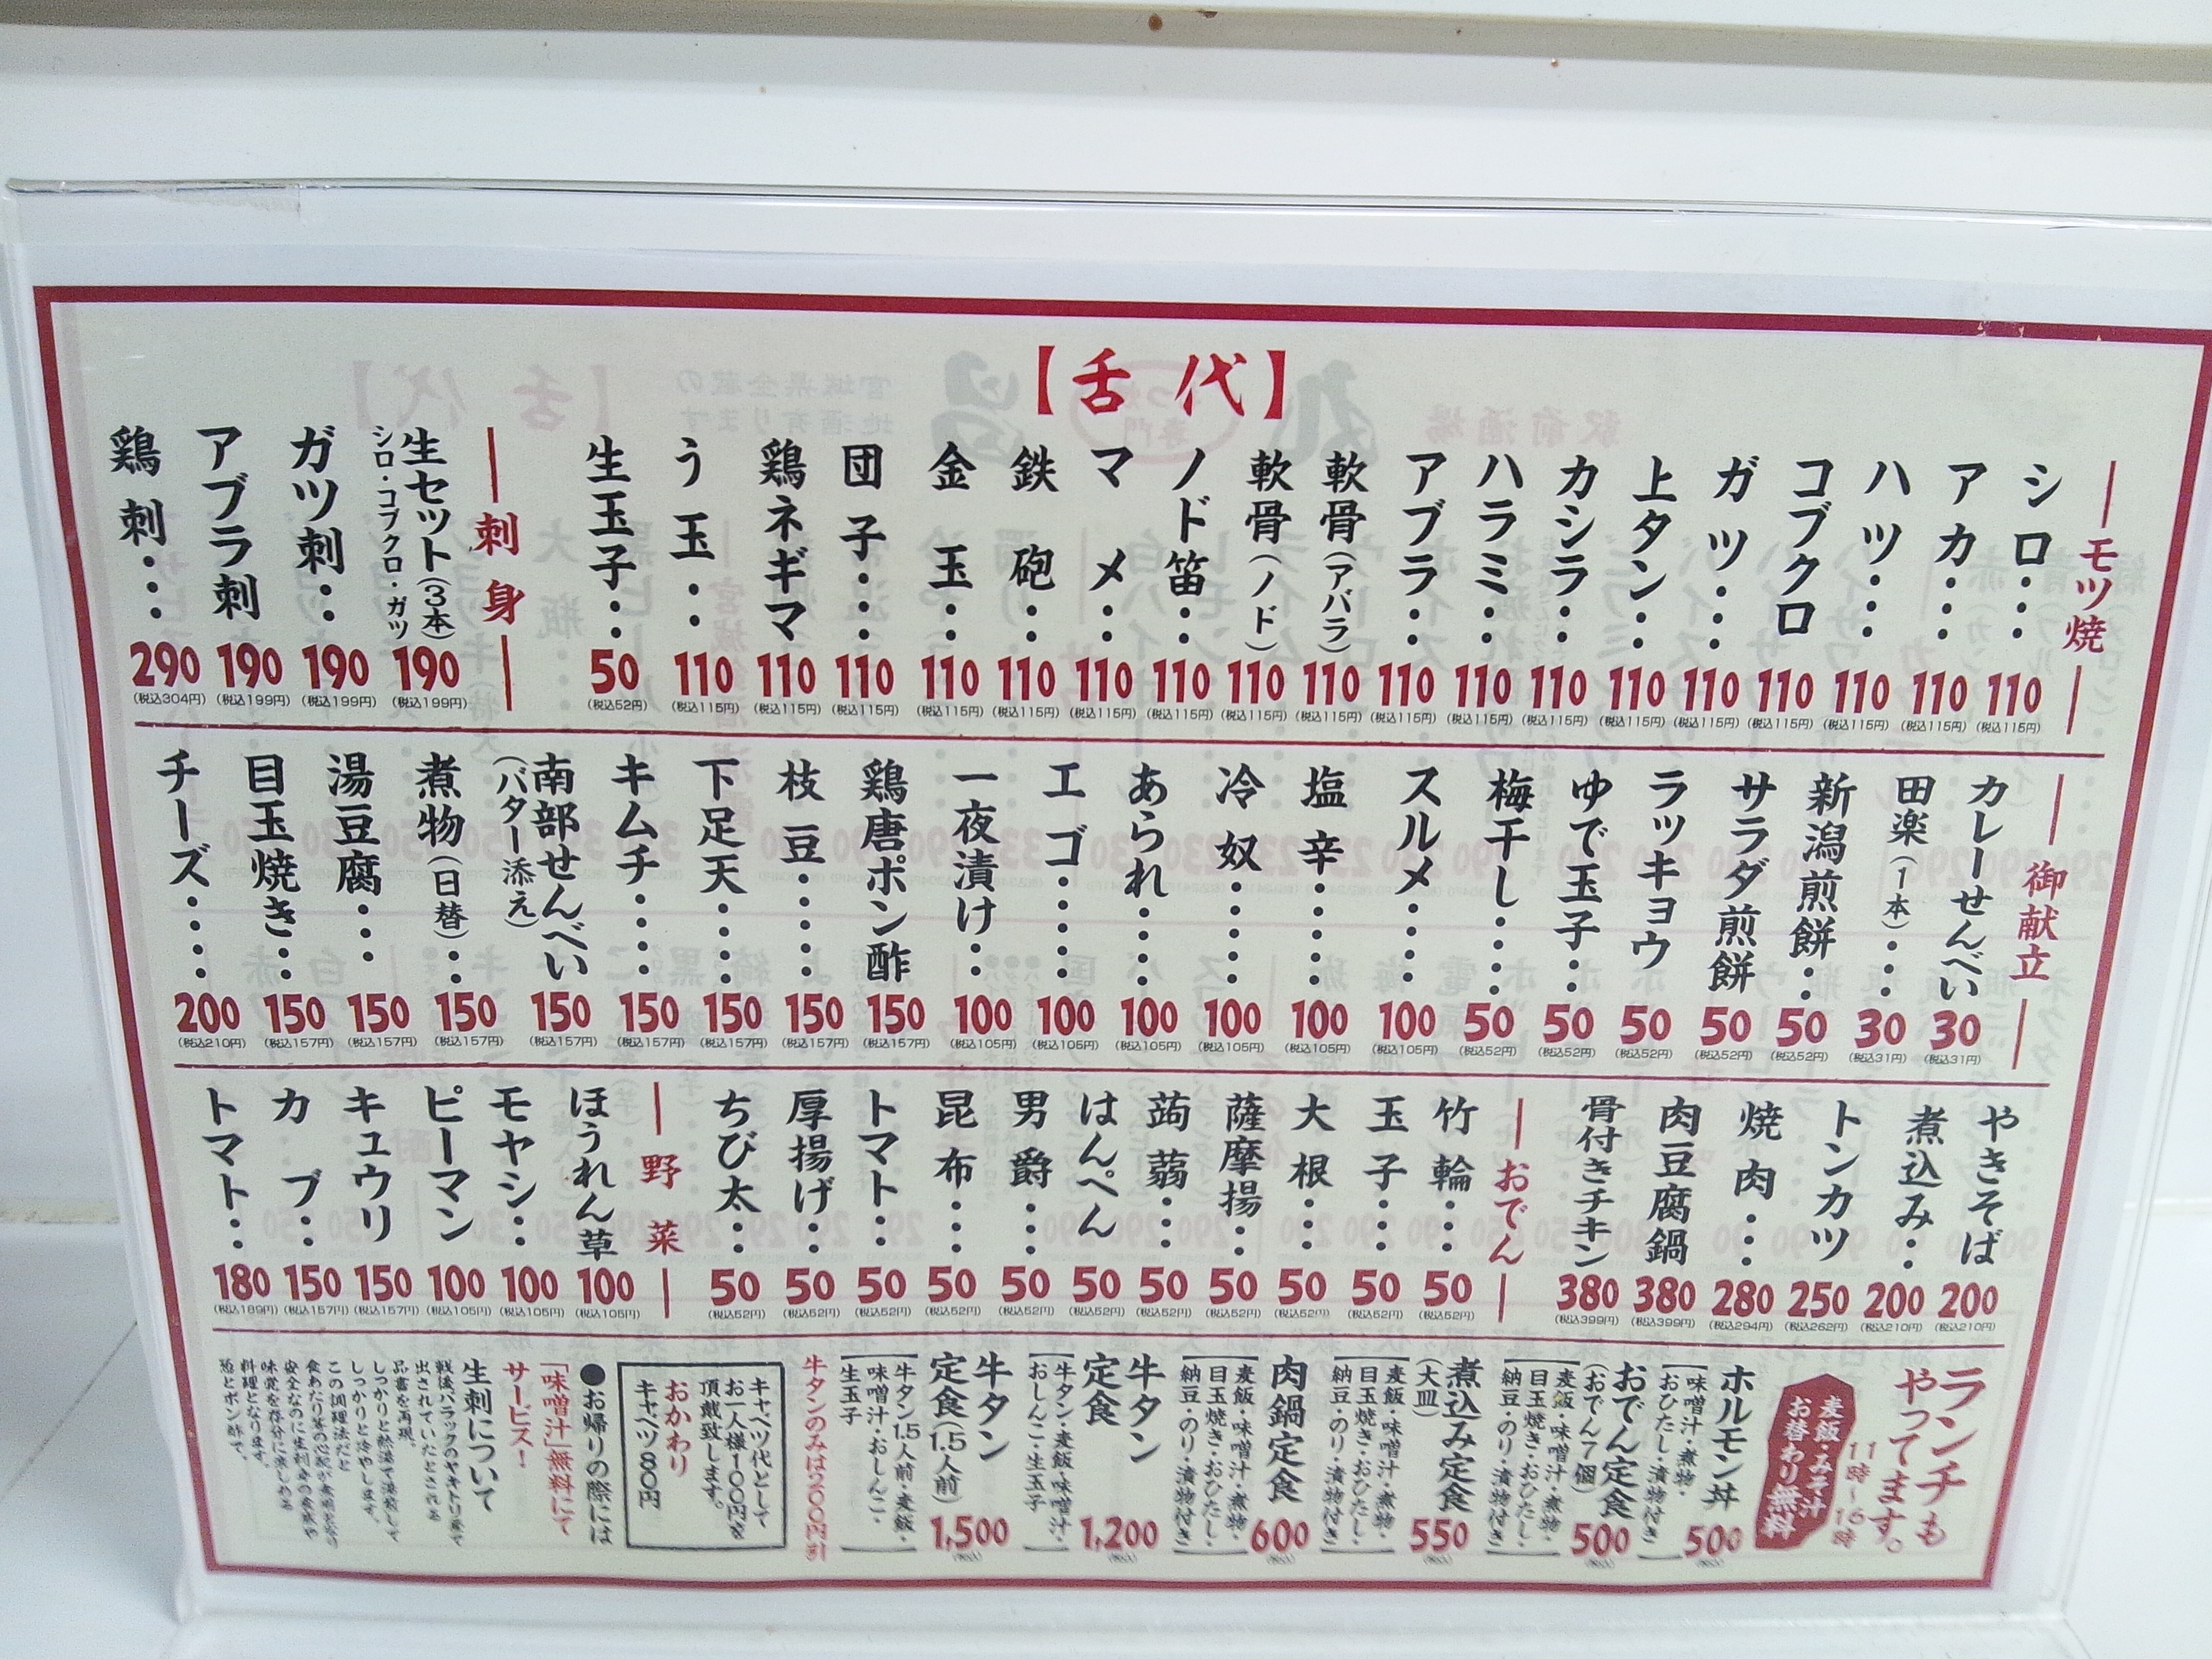 【舌代】
モツ焼
シロ・・・ 110 (税込115円)
アカ・・・ 110 (税込115円)
ハツ・・・ 110 (税込115円)
コブクロ 110 (税込115円)
ガツ・・・ 110 (税込115円)
上タン・・ 110 (税込115円)
カシラ・・ 110 (税込115円)
ハラミ・・ 110 (税込115円)
アブラ・・ 110 (税込115円)
軟骨(アバラ) 110 (税込115円)
軟骨(ノド) 110 (税込115円)
ノド笛・・ 110 (税込115円)
マメ・・ 110 (税込115円)
鉄砲・・ 110 (税込115円)
金玉・・ 110 (税込115円)
団子・・・ 110 (税込115円)
鶏ネギマ 110 (税込115円)
う玉・・ 110 (税込115円)
生玉子・・ 50 (税込52円)
刺身
生セット(3本) 190 (税込199円)
シロ・コブクロ・ガツ
ガツ刺・・ 190 (税込199円)
アブラ刺 190 (税込199円)
鶏刺・・・ 290 (税込304円)
御献立
カレーせんべい 30 (税込31円)
田楽(1本)・・・ 30 (税込31円)
新潟煎餅・・ 50 (税込52円)
サラダ煎餅 50 (税込52円)
ラッキョウ 50 (税込52円)
ゆで玉子・・ 50 (税込52円)
梅干し・・・・ 50 (税込52円)
スルメ・・・・ 100 (税込105円)
塩辛・・・・・ 100 (税込105円)
冷奴・・・・・ 100 (税込105円)
あられ・・・・ 100 (税込105円)
エゴ・・・・・ 100 (税込105円)
一夜漬け・・ 100 (税込105円)
鶏唐ポン酢 150 (税込157円)
枝豆・・・・・ 150 (税込157円)
下足天・・・・ 150 (税込157円)
キムチ・・・・ 150 (税込157円)
南部せんべい 150 (税込157円)
(バター添え)
煮物(日替)・・ 150 (税込157円)
湯豆腐・・・ 150 (税込157円)
目玉焼き・・・ 150 (税込157円)
チーズ・・・・ 200 (税込210円)
やきそば 200 (税込210円)
煮込み・・ 200 (税込210円)
トンカツ 250 (税込262円)
焼肉・・・ 280 (税込294円)
肉豆腐鍋 380 (税込399円)
骨付きチキン 380 (税込399円)
おでん
竹輪・・・ 50 (税込52円)
玉子・・・ 50 (税込52円)
大根・・・ 50 (税込52円)
薩摩揚・・ 50 (税込52円)
蒟蒻・・・ 50 (税込52円)
はんぺん 50 (税込52円)
男爵・・・ 50 (税込52円)
昆布・・・ 50 (税込52円)
トマト・・・ 50 (税込52円)
厚揚げ・・ 50 (税込52円)
ちび太・・ 50 (税込52円)
野菜
ほうれん草 100 (税込105円)
モヤシ・・ 100 (税込105円)
ピーマン 100 (税込105円)
キュウリ 150 (税込157円)
カブ・・ 150 (税込157円)
トマト・・・ 180 (税込189円)
ランチも
やってます。
11時〜16時
麦飯・みそ汁
お替わり無料
ホルモン丼 500 (税込)
味噌汁・煮物・
おひたし・漬物付き
おでん定食 500 (税込)
(おでん7個)
麦飯・味噌汁・煮物・
目玉焼き・おひたし・
納豆・のり・漬物付き
煮込み定食 550 (税込)
(大皿)
麦飯・味噌汁・煮物・
目玉焼き・おひたし・
納豆・のり・漬物付き
肉鍋定食 600 (税込)
麦飯・味噌汁・煮物・
目玉焼き・おひたし・
納豆・のり・漬物付き
牛タン
定食 1,200 (税込)
牛タン・麦飯・味噌汁・
おしんこ・生玉子
牛タン
定食(1.5人前) 1,500 (税込)
牛タン1.5人前・麦飯・
味噌汁・おしんこ・
生玉子
牛タンのみは200円引
キャベツ代として
お一人様100円を
頂戴致します。
おかわり
キャベツ80円
●お帰りの際には
「味噌汁」無料にて
サービス!
生刺について
戦後バラックのヤキトリ屋で
出されていたとされる
品書を再現。
しっかりと熱湯で湯煎して
しっかりと冷やします。
この調理法だと
食あたり等の心配が
安全なのに生刺身の食感や
味覚を存分に楽しめる
料理となります。